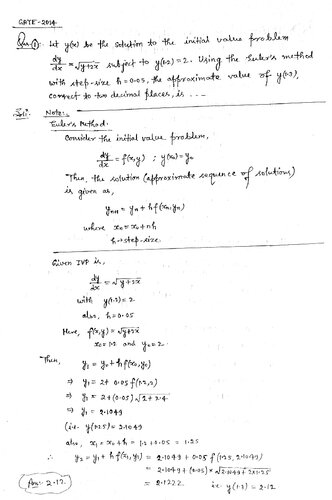 GATE-2014
Que.(1): Let y(x) be the solution to the initial value problem
dy/dx = √y+2x subject to y(1.2)=2. Using the Euler's method
with step-size h=0.05, the approximate value of y(1.3),
correct to two decimal places, is ...
Sol: Note:-
Euler's Method:-
Consider the initial value problem,
dy/dx = f(x,y) ; y(x0)=y0
Then, the solution (approximate sequence of solutions)
is given as,
yn+1 = yn + hf(xn,yn)
where xn = x0+nh
h→step-size.
Given IVP is,
dy/dx = √y+2x
with y(1.2)=2
also, h=0.05
Here, f(x,y) = √y+2x
x0=1.2 and y0=2.
Then,
y1 = y0 + hf(x0,y0)
⇒ y1 = 2+ 0.05 f(1.2,2)
⇒ y1 = 2+(0.05)√2+2.4
⇒ y1 = 2.1049
(i.e. y(1.25)=2.1049
also, x1 = x0+h = 1.2+0.05 = 1.25
∴ y2 = y1 + hf(x1,y1) = 2.1049 + 0.05 f(1.25, 2.1049)
= 2.1049 + (0.05)×√2.1049+2×1.25
Ans: 2.12.
= 2.1222 i.e. y(1.3) = 2.12